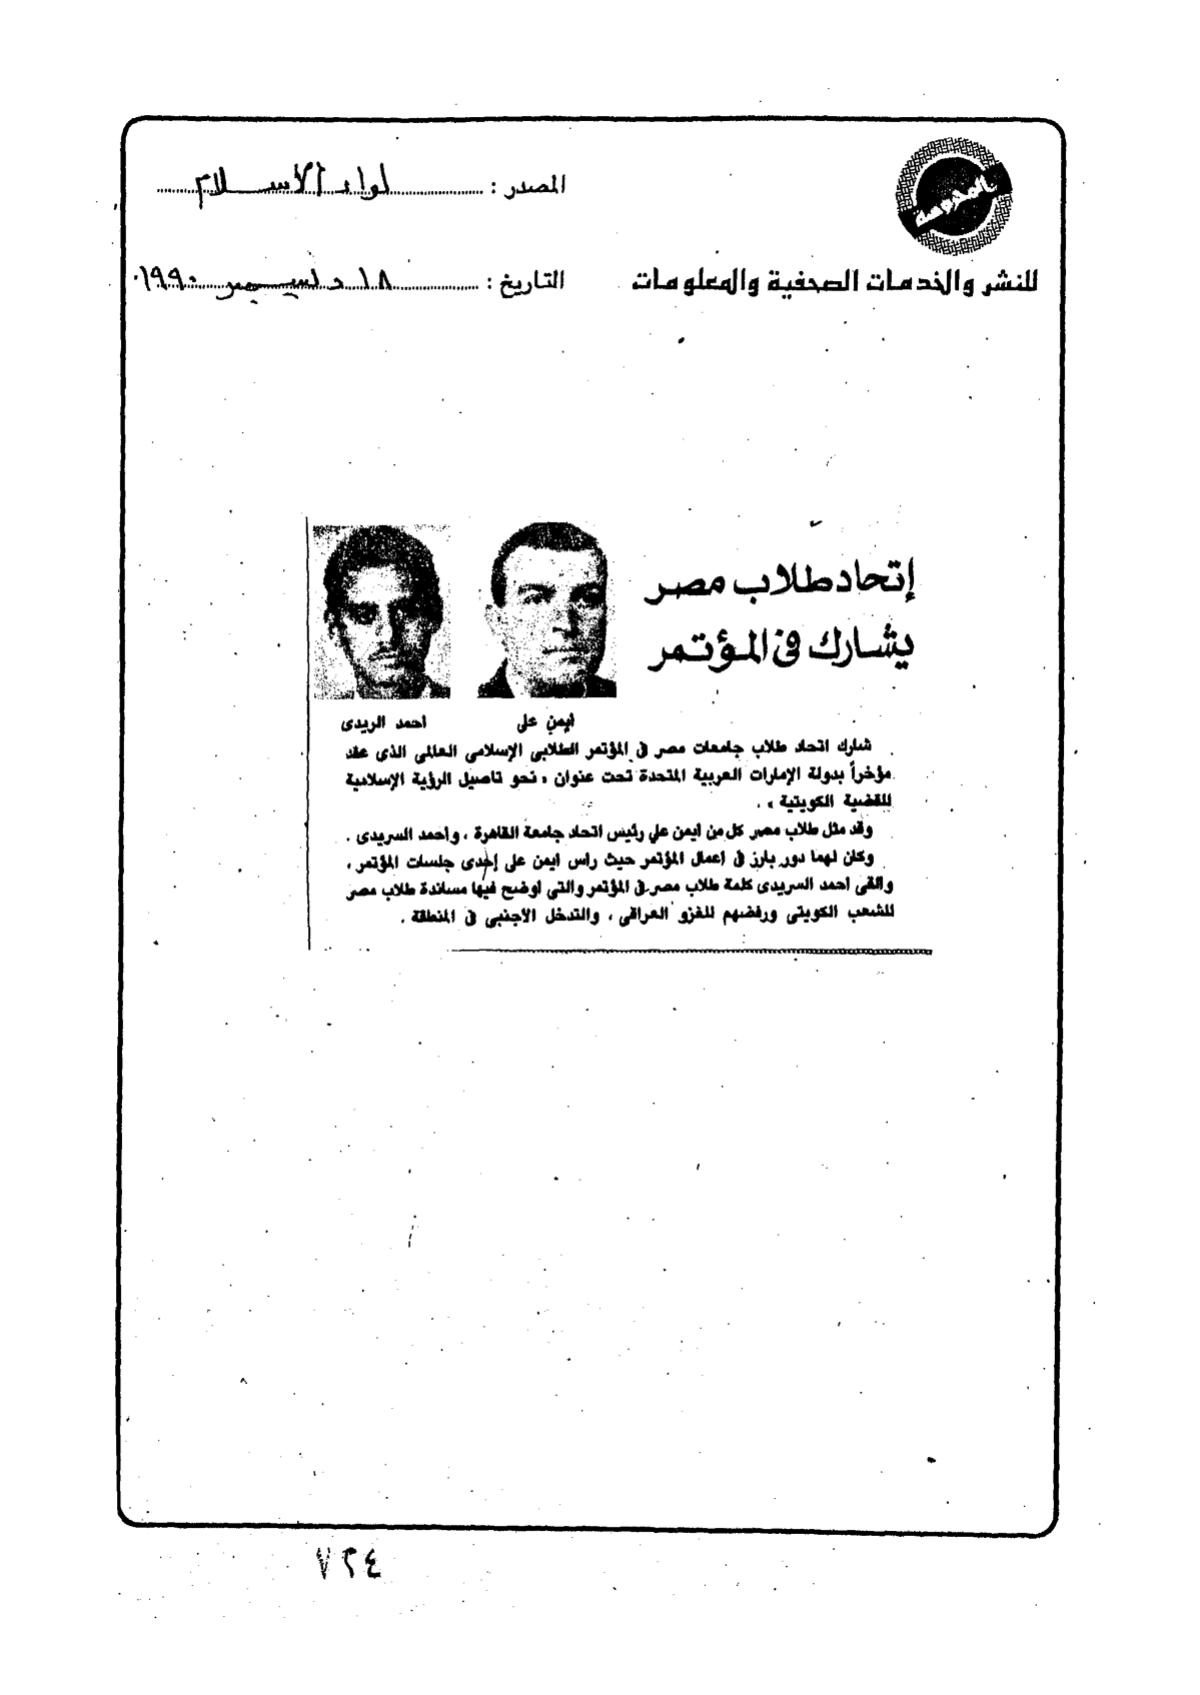 المصدر : لواء الإسلام
للنشر والخدمات الصحفية والمعلومات
التاريخ : ١٨ ديسمبر ١٩٩٠
إتحاد طلاب مصر
يشارك في المؤتمر
ايمن على
احمد الريدى
شارك اتحاد طلاب جامعات مصر في المؤتمر الطلابى الإسلامى العالمى الذى عقد
مؤخراً بدولة الإمارات العربية المتحدة تحت عنوان « نحو تاصيل الرؤية الإسلامية
للقضية الكويتية » .
وقد مثل طلاب مصر كل من ايمن على رئيس اتحاد جامعة القاهرة ، واحمد السريدى .
وكان لهما دور بارز في اعمال المؤتمر حيث راس ايمن على إحدى جلسات المؤتمر ،
والقى احمد السريدى كلمة طلاب مصر في المؤتمر والتى اوضح فيها مساندة طلاب مصر
للشعب الكويتى ورفضهم للغزو العراقى ، والتدخل الاجنبى في المنطقة .
٧٢٤